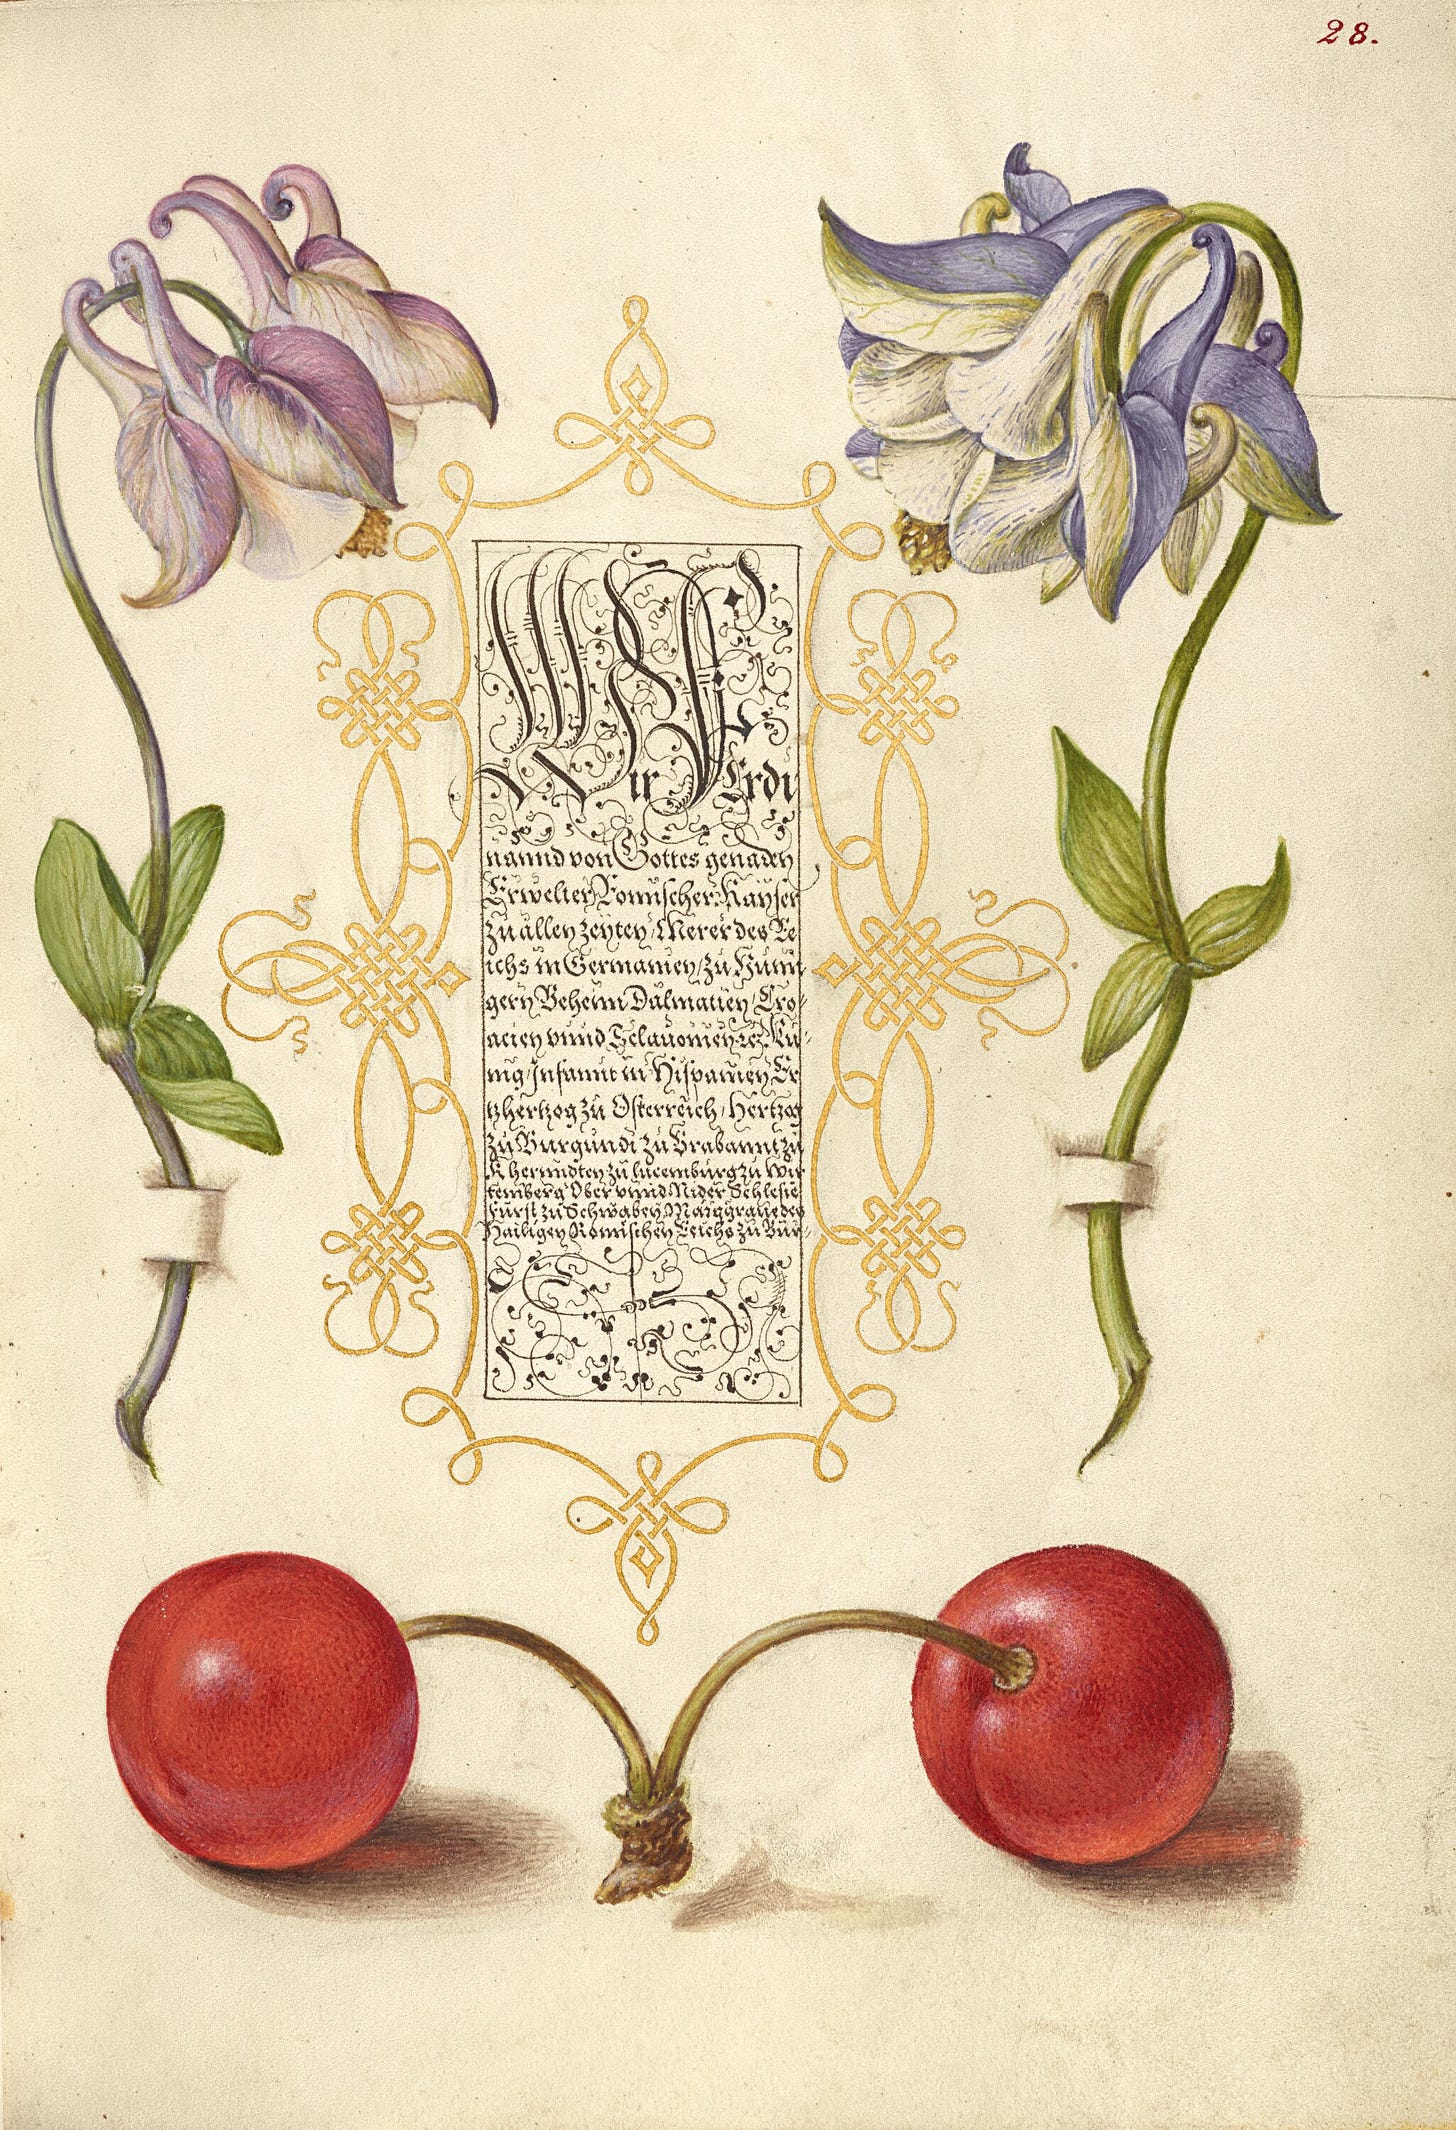 28.
Wir Ferdi
nannd von Gottes genaden
Erwelter Romischer Kayser
zu allen zeyten Merer des Re
ichs in Germanien, zu Hunn
gern Beheim Dalmatien, Cro
acien vnnd Sclauonien &c. Kü
nig, Infannt in Hispanien, Er
tzhertzog zu Osterreich, Hertzog
zu Burgundi zu Brabannt zu
Kherndten zu lucemburg zu Wir
temberg Ober vnnd Nider Schlesie
Fürst zu Schwaben, Marggraue des
Hailigen Römischen Reichs zu Bur-